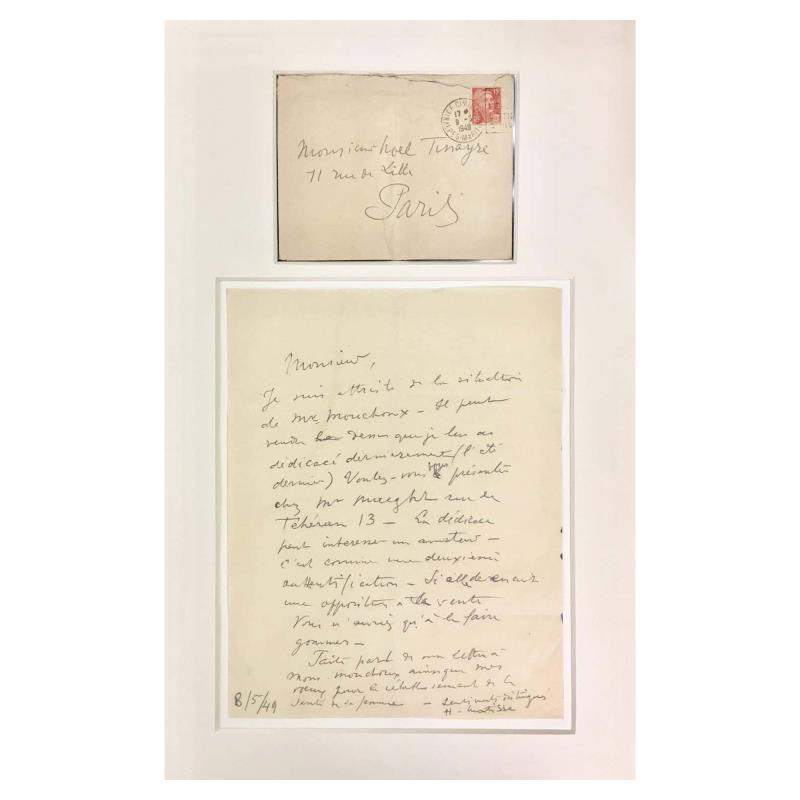 NICE-CIM
17 H
9 - 5
1949
ALPES-MARITIMES
Monsieur Noel Tinayre
11 rue de Lille
Paris
Monsieur,
Je suis attristé de la situation
de Mr Mouchoux - Il peut
vendre le dessin que je lui ai
dédicacé dernièrement (l'été
dernier) Voulez-vous vous présenter
chez Mr Maeght rue de
Téhéran 13 - La dédicace
peut interesser un amateur -
c'est comme une deuxième
authentification - Si elle devenait
une opposition à la vente
Vous n'auriez qu'à la faire
gommer -
Faites part de ma lettre à
Mons. Mouchoux ainsi que mes
voeux pour le rétablissement de la
santé de sa femme - Sentiments distingués
H. Matisse
8/5/49